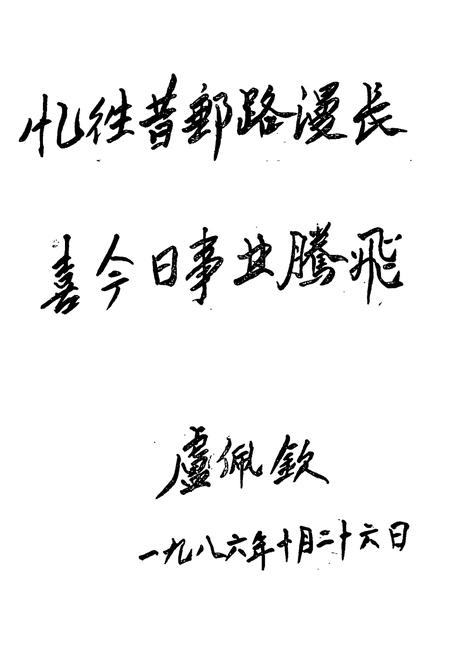 忆往昔郵路漫长
喜今日事业腾飛
盧佩欽
一九八六年十月二十六日